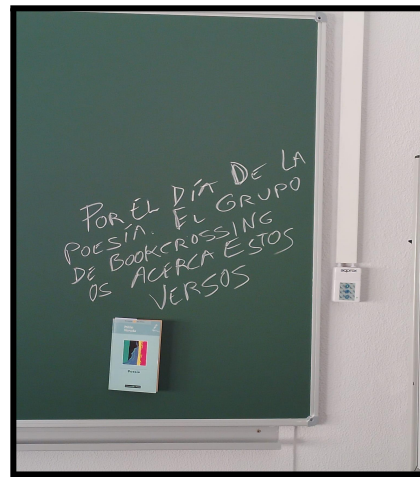 POR EL DÍA DE LA
POESÍA. EL GRUPO
DE BOOKCROSSING
OS ACERCA ESTOS
VERSOS
Poesía